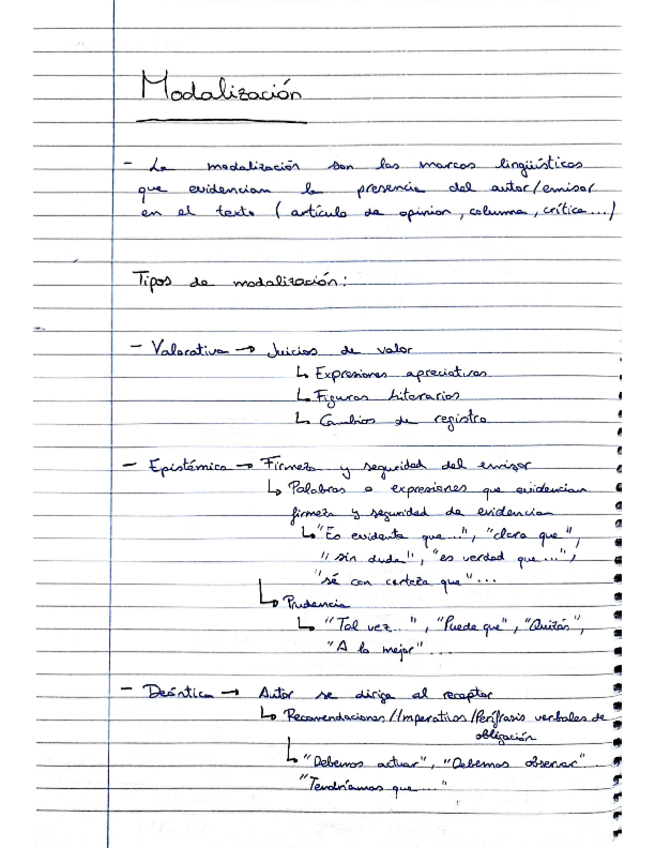 Modalización
- La modalización son las marcas lingüísticas
que evidencian la presencia del autor/emisor
en el texto (artículo de opinion, columna, crítica...)
Tipos de modalización:
- Valorativa → Juicios de valor
↳ Expresiones apreciativas
↳ Figuras Literarias
↳ Cambios de registro
- Epistémica → Firmeza y seguridad del emisor
↳ Palabras o expresiones que evidencian
firmeza y seguridad de evidencian
↳ "Es evidente que...", "claro que",
"sin duda", "es verdad que...",
"sé con certeza que"...
↳ Prudencia
↳ "Tal vez...", "Puede que", "Quizás",
"A lo mejor"...
- Deóntica → Autor se dirige al receptor
↳ Recomendaciones/Imperativos/Perífrasis verbales de
obligación
↳ "Debemos actuar", "Debemos observar"
"Tendríamos que..."